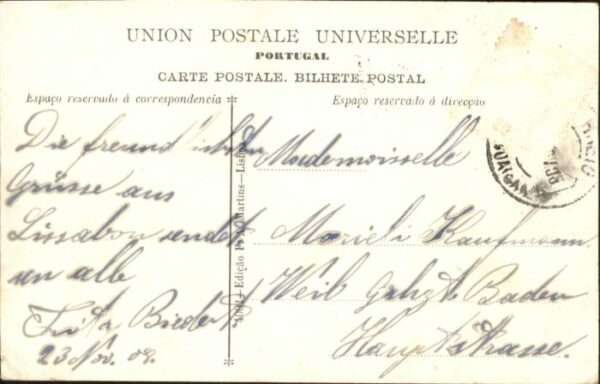 UNION POSTALE UNIVERSELLE
PORTUGAL
CARTE POSTALE. BILHETE POSTAL
Espaço reservado á correspondencia
Espaço reservado á direcção
Die freundlichsten
Grüsse aus
Lissabon sendet
an alle
Frita Biedert
23 Nov. 09.
Edição Martins—Lisboa
Mademoiselle
Marieli Kaufmann
Weil Baden
Hauptstrasse.